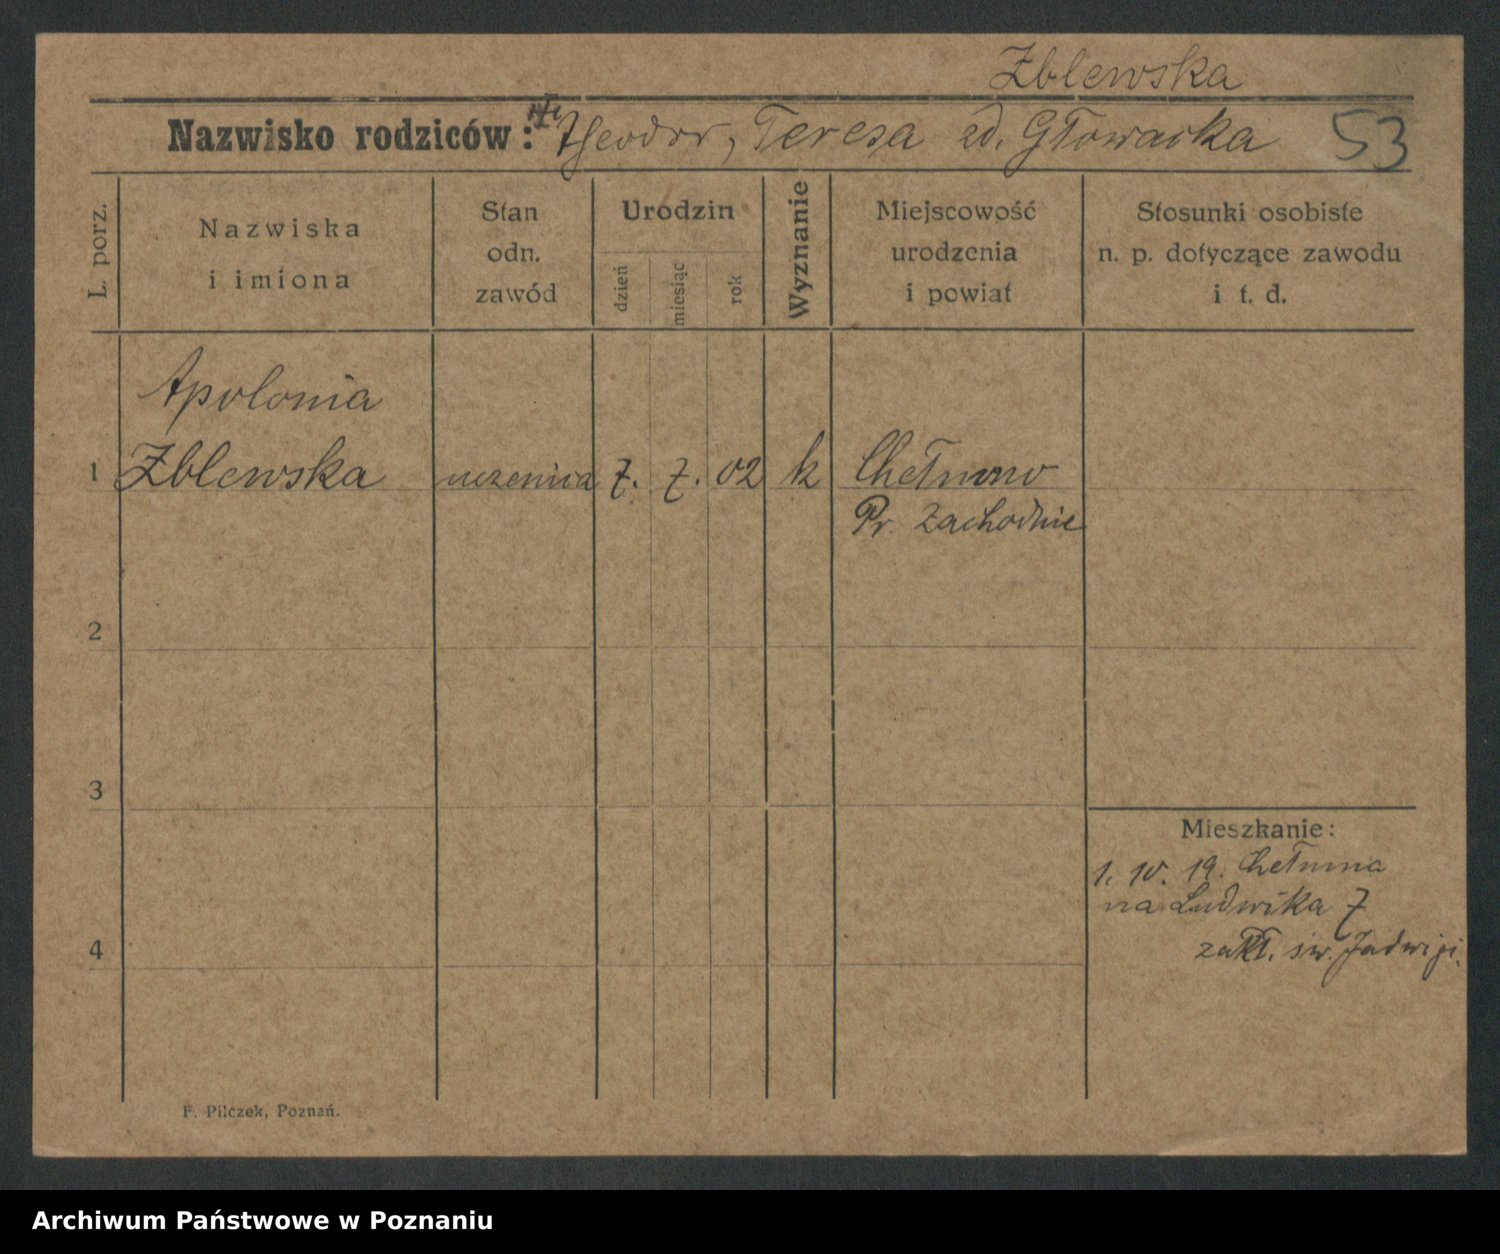 Zblewska
Nazwisko rodziców: Theodor, Teresa zd. Głowacka 53
L. porz.
Nazwiska
i imiona
Stan
odn.
zawód
Urodzin
dzień
miesiąc
rok
Wyznanie
Miejscowość
urodzenia
i powiat
Stosunki osobiste
n. p. dotyczące zawodu
i t. d.
Apolonia
1 Zblewska uczenica 7. 7. 02 k Chełmno
Pr. Zachodnie
2
3
Mieszkanie:
1. 10. 19. Chełmna
na Ludwika 7
4 zakł. św. Jadwigi.
F. Pilczek, Poznań.
Archiwum Państwowe w Poznaniu